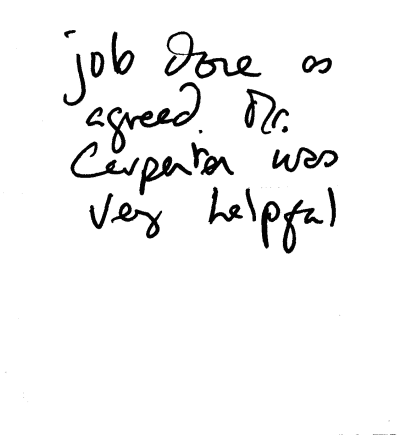 job done as
agreed. Mr.
Carpenter was
very helpful